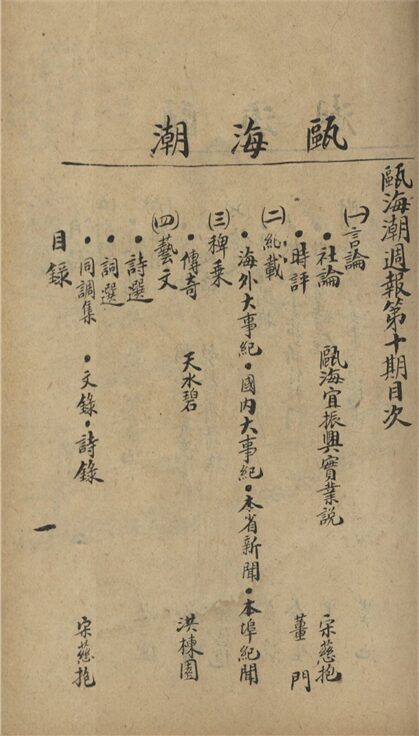 甌海潮
甌海潮週報第十期目次
㈠言論
•社論　甌海宜振興實業説　宋慈抱
•時評　薑門
㈡紀載
•海外大事紀•國內大事紀•本省新聞•本埠紀聞
㈢稗乗
•傳奇　天水碧　洪棟園
㈣藝文
•詩選
•詞選
•同調集•文錄•詩錄　宋慈抱
目錄
一